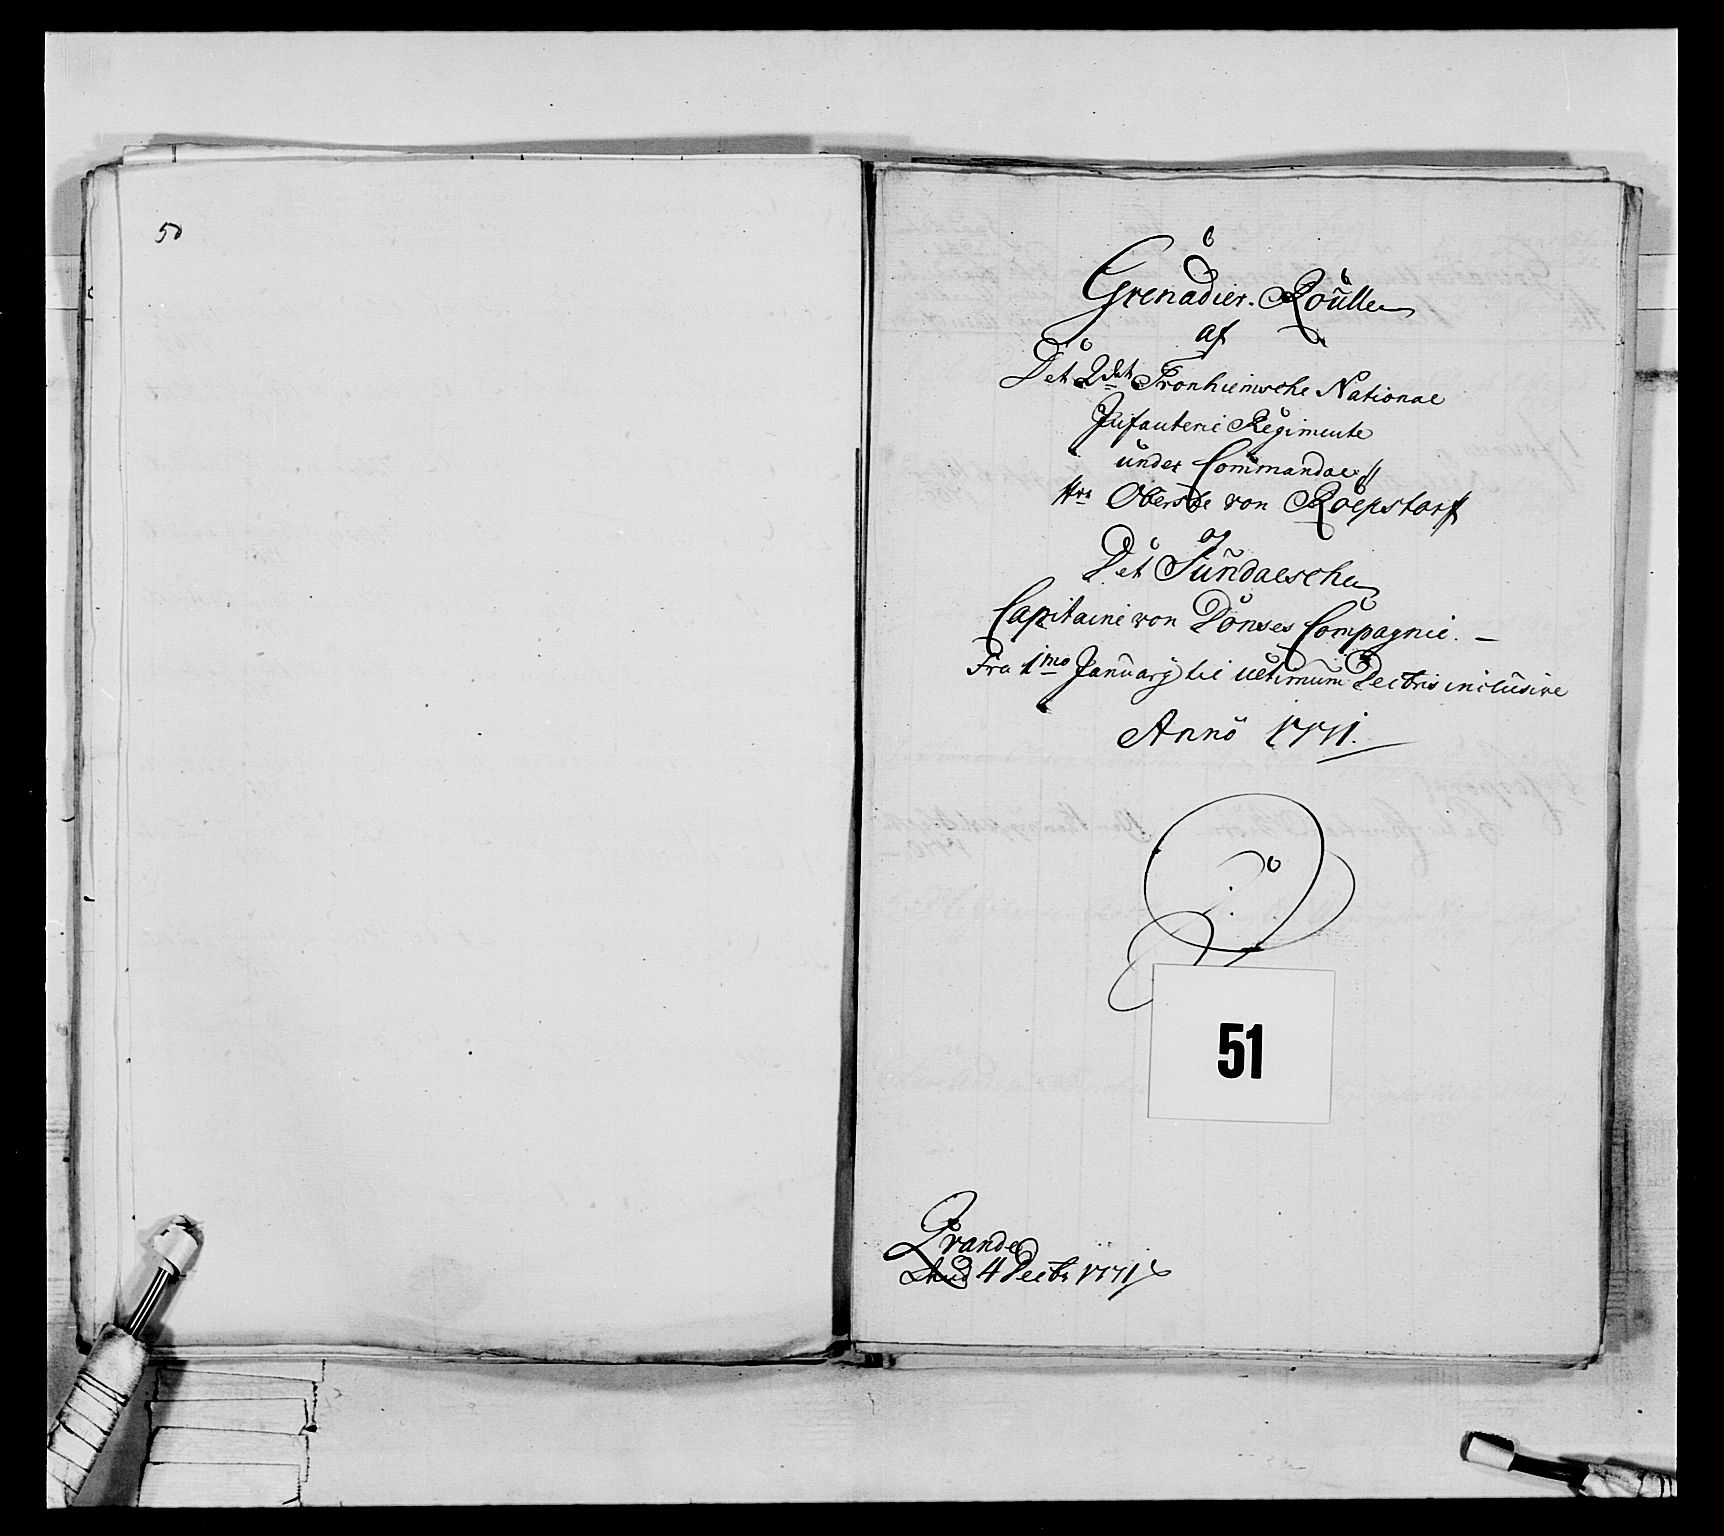 50
Grenadier. Roulle
af
Det 2det Tronhiemsche National
Infanterie Regimente
under Commando
Hrr Oberste von Röepstorf
og
Det Sundalsche
Capitaine von Dönses Compagnie. —
Fra 1mo January til ultimum Decbris inclusive
Anno 1771.
51
Grande
4 Decbr 1771